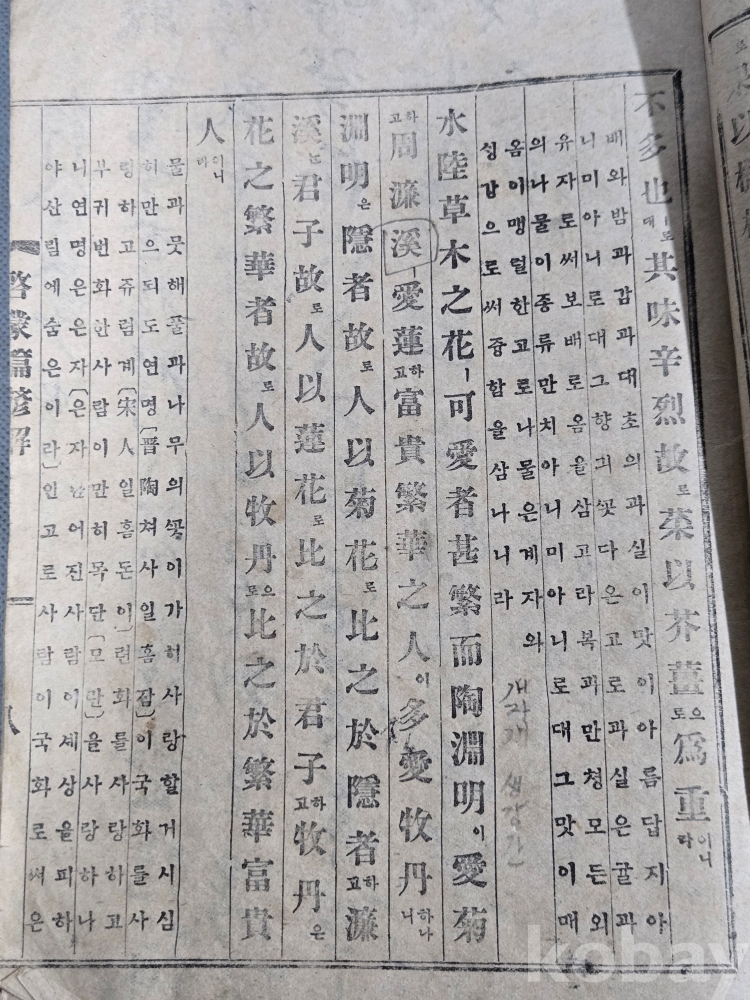 不多也ㅣ로대其味辛烈故로菜以芥薑으로爲重이니라
배와밤과감과대초의과실이맛이아름답지아
니미아니로대그향긔꼿다온고로과실은귤과
유자로써보배로옴을삼고라복과만청모든외
의나물이죵류만치아니미아니로대그맛이매
옴이맹렬한고로나물은계자와
싱강으로써즁함을삼나니라
개자개 생강강
水陸草木之花ㅣ可愛者甚繁而陶淵明이愛菊
하고周濂溪ㅣ愛蓮하고富貴繁華之人이多愛牧丹하나니
淵明은隱者故로人以菊花로比之於隱者하고濂
溪는君子故로人以蓮花로比之於君子하고牧丹은
花之繁華者故로人以牧丹으로比之於繁華富貴
人이니라
물과뭇해풀과나무의꼿이가히사랑할거시심
히만으되도연명[晋陶쳐사일흠잠]이국화를사
랑하고쥬렴계[宋人일흠돈이]련화를사랑하고
부귀번화한사람이만히목단[모란]을사랑하나
니연명은은자[은자는어진사람이세상을피하
야산림에숨은이라]인고로사람이국화로써은
啓蒙篇諺解
八
kobay